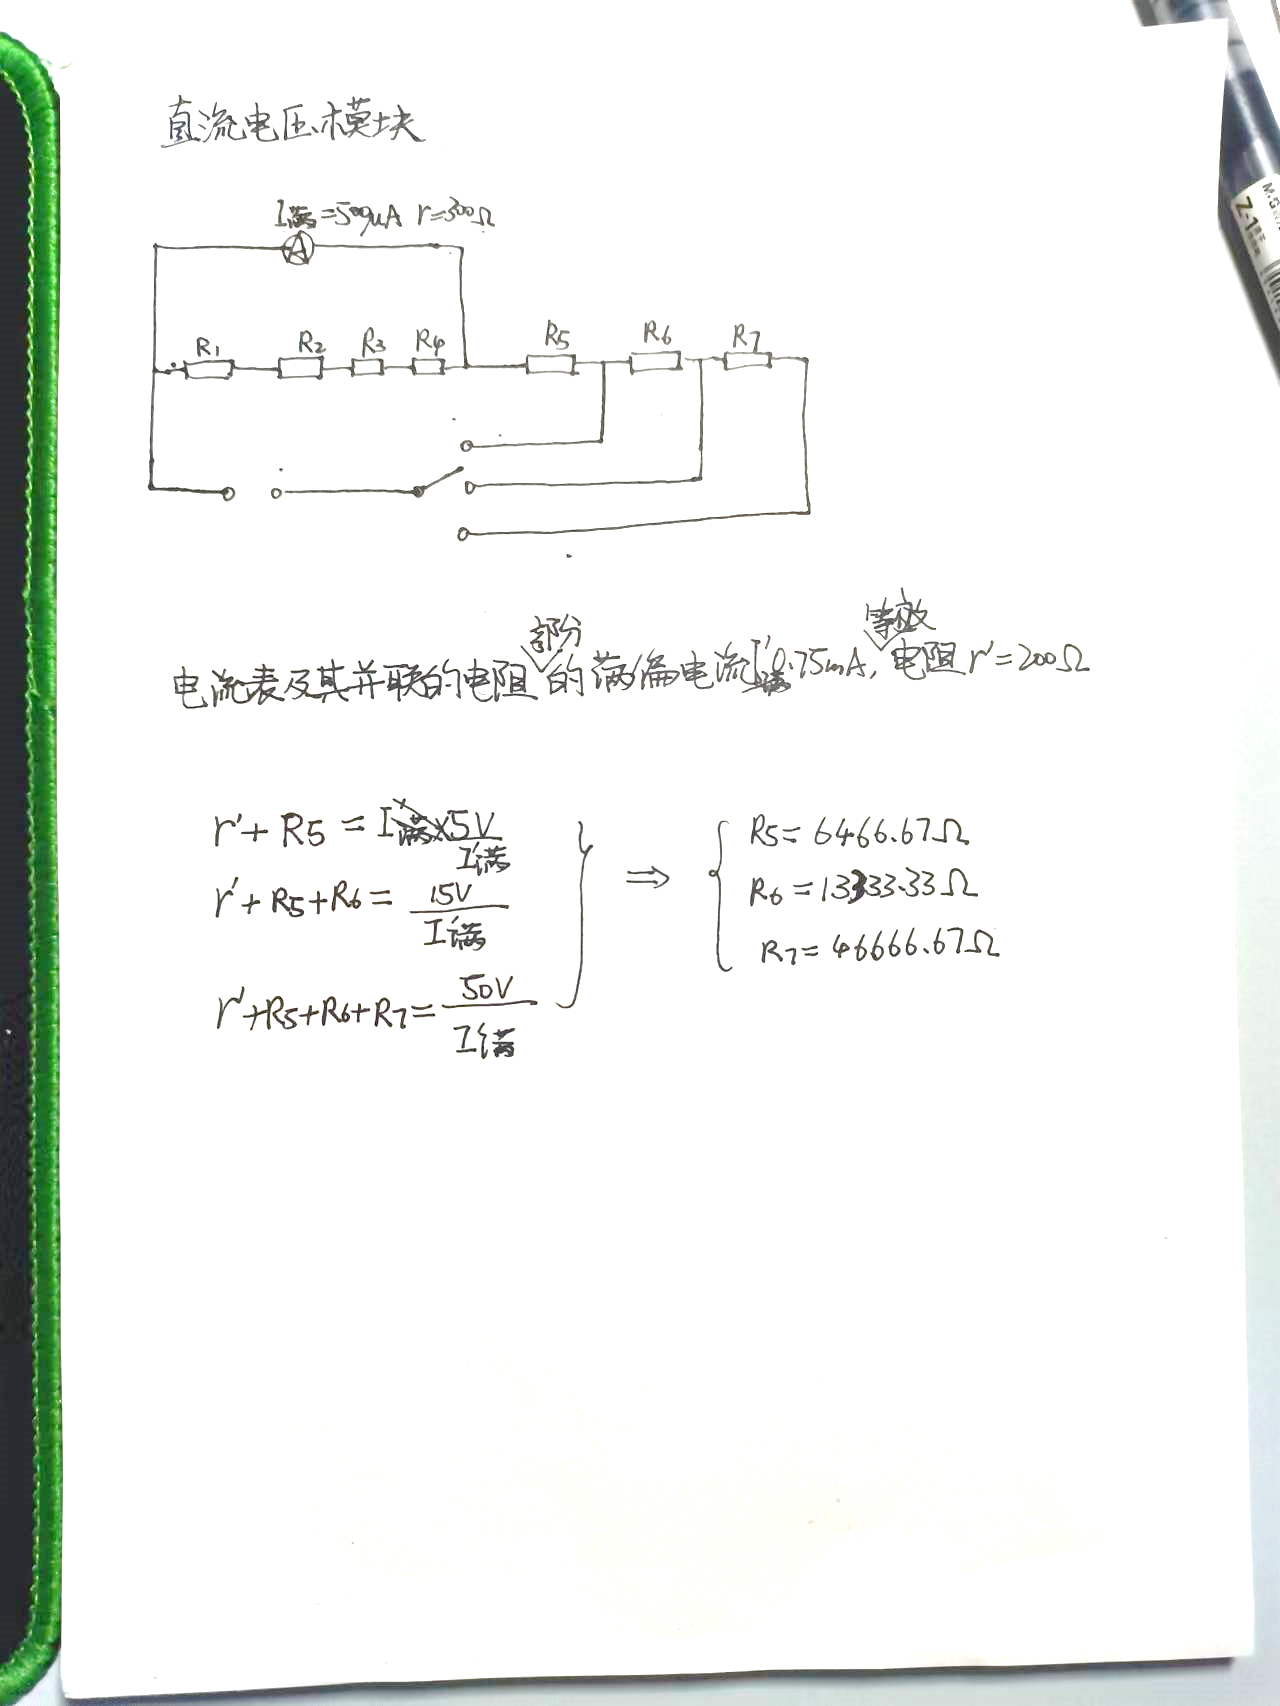 直流电压模块
I满=500μA r=300Ω
A
R1 R2 R3 R4 R5 R6 R7
电流表及其并联的电阻部分的满偏电流I'满0.75mA,等效电阻r'=200Ω
r'+R5=5V/I'满
r'+R5+R6=15V/I'满
r'+R5+R6+R7=50V/I'满
⇒
R5=6466.67Ω
R6=13333.33Ω
R7=46666.67Ω
M&G
Z-1